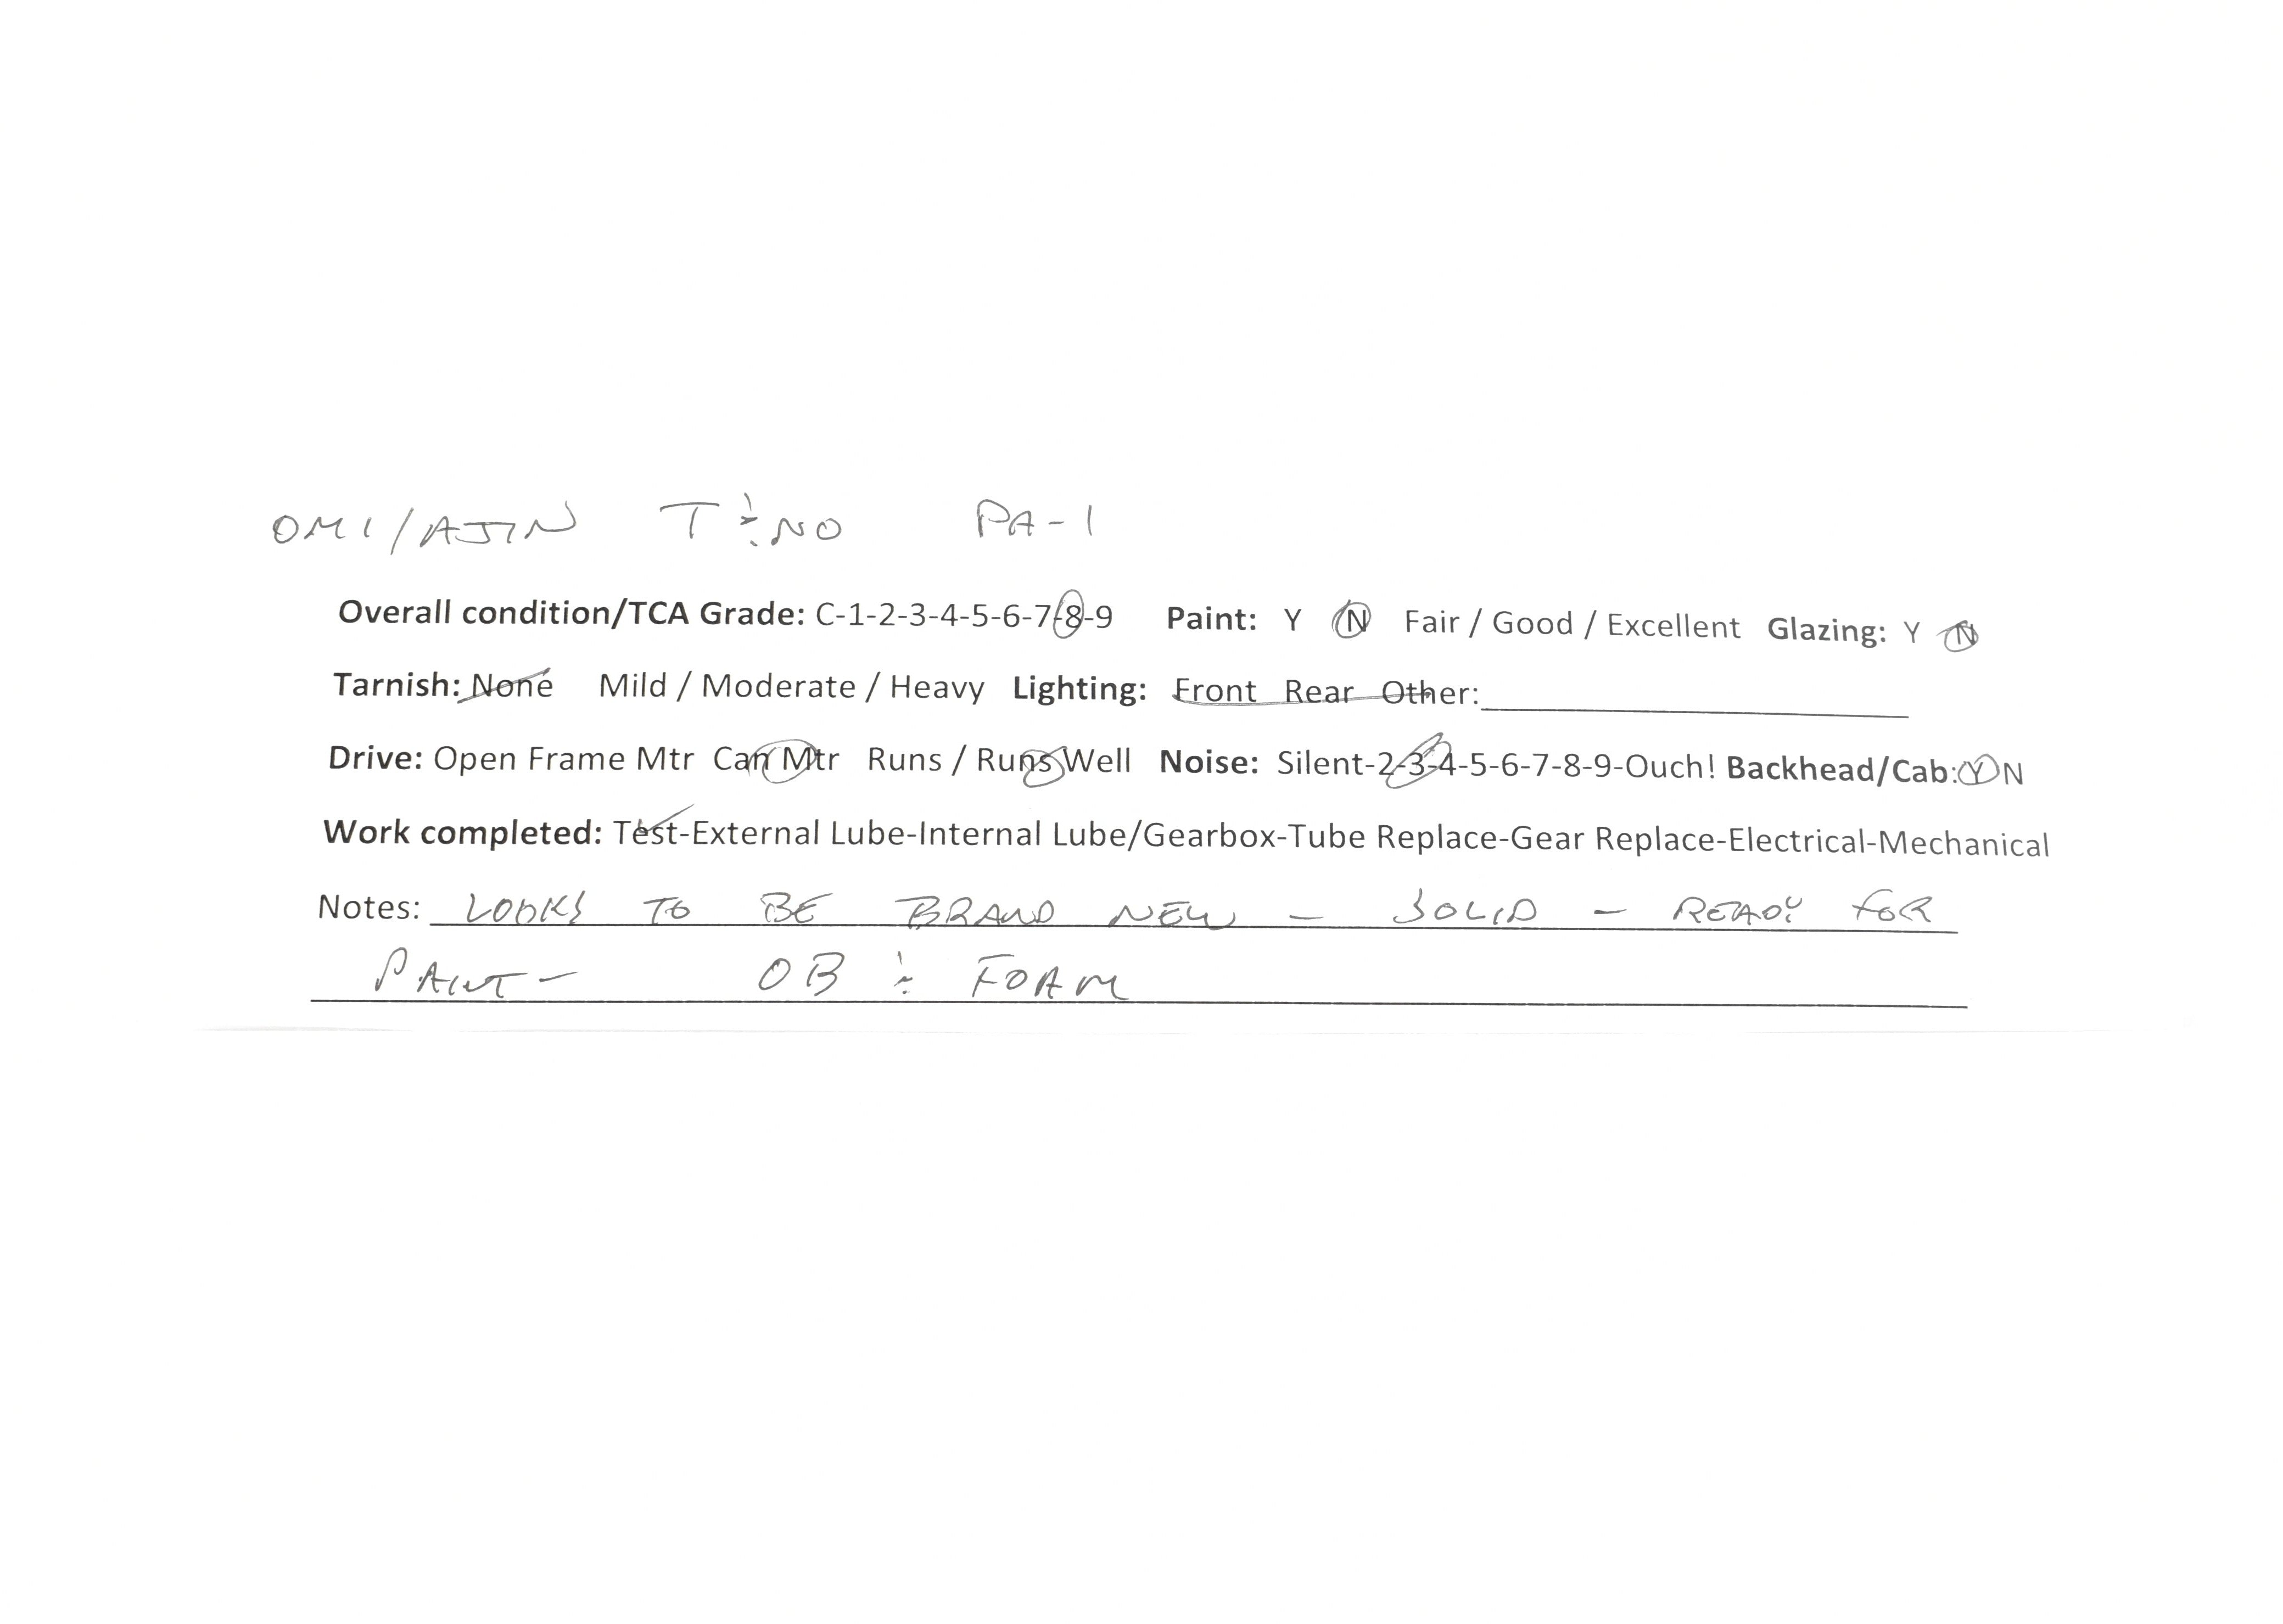 OMI/AJIN T & NO PA-1
Overall condition/TCA Grade: C-1-2-3-4-5-6-7-8-9 Paint: Y N Fair / Good / Excellent Glazing: Y N
Tarnish: None Mild / Moderate / Heavy Lighting: Front Rear Other:
Drive: Open Frame Mtr Can Mtr Runs / Runs Well Noise: Silent-2-3-4-5-6-7-8-9-Ouch! Backhead/Cab: Y N
Work completed: Test-External Lube-Internal Lube/Gearbox-Tube Replace-Gear Replace-Electrical-Mechanical
Notes: LOOKS TO BE BRAND NEW - SOLID - READY FOR
PAINT- OB & FOAM